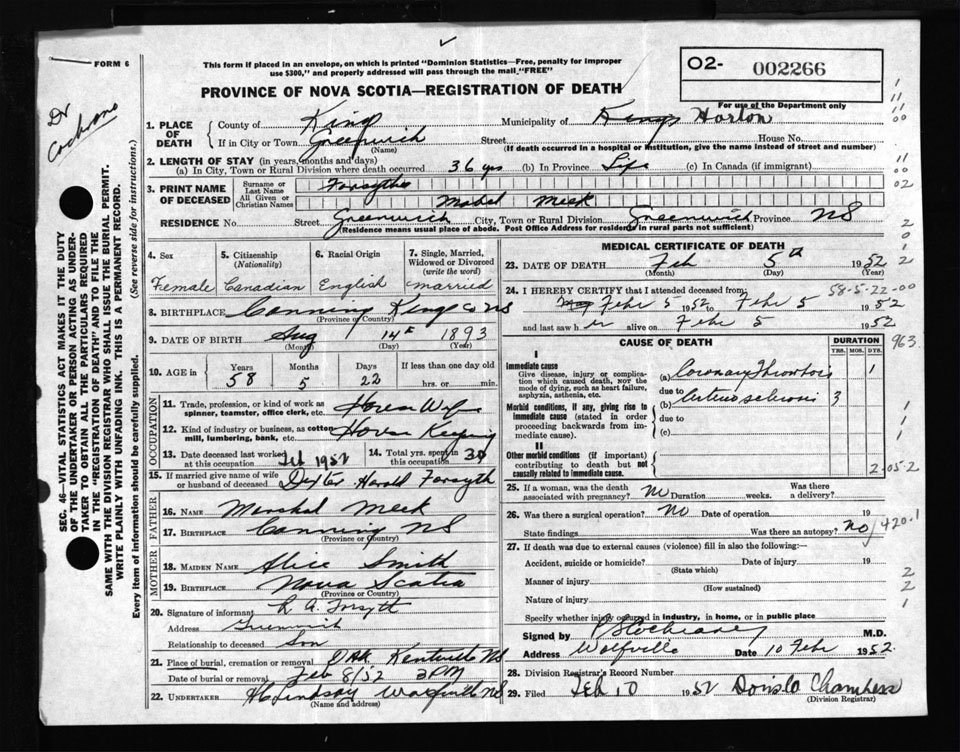 FORM 6
Dr Cochrane
This form if placed in an envelope, on which is printed "Dominion Statistics—Free, penalty for improper
use $300," and properly addressed will pass through the mail "FREE"
PROVINCE OF NOVA SCOTIA—REGISTRATION OF DEATH
02- 002266
For use of the Department only
SEC. 46—VITAL STATISTICS ACT MAKES IT THE DUTY
OF THE UNDERTAKER OR PERSON ACTING AS UNDER-
TAKER TO OBTAIN ALL THE PARTICULARS REQUIRED
IN THE "REGISTRATION OF DEATH" AND TO FILE THE
SAME WITH THE DIVISION REGISTRAR WHO SHALL ISSUE THE BURIAL PERMIT.
WRITE PLAINLY WITH UNFADING INK. THIS IS A PERMANENT RECORD.
Every item of information should be carefully supplied. (See reverse side for instructions.)
1. PLACE OF DEATH County of Kings Municipality of Kings Horton
If in City or Town Greenwich Street House No.
(Name) (If death occurred in a hospital or institution, give the name instead of street and number)
2. LENGTH OF STAY (in years, months and days)
(a) In City, Town or Rural Division where death occurred 36 yrs (b) In Province Life (c) In Canada (if immigrant)
3. PRINT NAME OF DECEASED Surname or Last Name Forsythe
All Given or Christian Names Mabel Meek
RESIDENCE No. Street Greenwich City, Town or Rural Division Greenwich Province NS
(Residence means usual place of abode. Post Office Address for residents in rural parts not sufficient)
4. Sex 5. Citizenship (Nationality) 6. Racial Origin 7. Single, Married, Widowed or Divorced (write the word)
Female Canadian English married
8. BIRTHPLACE Canning Kings Co NS
(Province or Country)
9. DATE OF BIRTH Aug 14th 1893
(Month) (Day) (Year)
10. AGE in Years Months Days If less than one day old
58 5 22 hrs. or min.
OCCUPATION
11. Trade, profession, or kind of work as
spinner, teamster, office clerk, etc. House Wife
12. Kind of industry or business, as cotton
mill, lumbering, bank, etc. House Keeping
13. Date deceased last worked at this occupation Feb 1952 14. Total yrs. spent in this occupation 30
15. If married give name of wife or husband of deceased Dexter Harold Forsyth
FATHER
16. NAME Marshal Meek
17. BIRTHPLACE Canning NS
(Province or Country)
MOTHER
18. MAIDEN NAME Alice Smith
19. BIRTHPLACE Nova Scotia
(Province or Country)
20. Signature of informant L A Forsyth
Address Greenwich
Relationship to deceased Son
21. Place of burial, cremation or removal Oak Kentville NS
Date of burial or removal Feb 8/52 2PM
22. UNDERTAKER H C Lindsay Wolfville NS
(Name and address)
MEDICAL CERTIFICATE OF DEATH
23. DATE OF DEATH Feb 5th 1952
(Month) (Day) (Year)
24. I HEREBY CERTIFY that I attended deceased from: 58-5-22-00
Febr 5 1952 to Febr 5 1952
and last saw h er alive on Febr 5 1952
CAUSE OF DEATH DURATION 963
YRS. MOS. DYS.
I
Immediate cause
Give disease, injury or complica-
tion which caused death, not the
mode of dying, such as heart failure,
asphyxia, asthenia, etc.
(a) Coronary Thrombosis 1
due to
(b) Arteriosclerosis 3
due to
(c)
Morbid conditions, if any, giving rise to
immediate cause (stated in order
proceeding backwards from im-
mediate cause).
II
Other morbid conditions (if important)
contributing to death but not
causally related to immediate cause.
2-05-2
25. If a woman, was the death associated with pregnancy? No Duration weeks. Was there a delivery?
26. Was there a surgical operation? No Date of operation 19
State findings Was there an autopsy? no 420.1
27. If death was due to external causes (violence) fill in also the following:—
Accident, suicide or homicide? Date of injury 19
(State which)
Manner of injury
(How sustained)
Nature of injury
Specify whether injury occurred in industry, in home, or in public place
Signed by B Cochrane M.D.
Address Wolfville Date 10 Febr 1952.
28. Division Registrar's Record Number
29. Filed Feb 10 1952 Chambers
(Division Registrar)